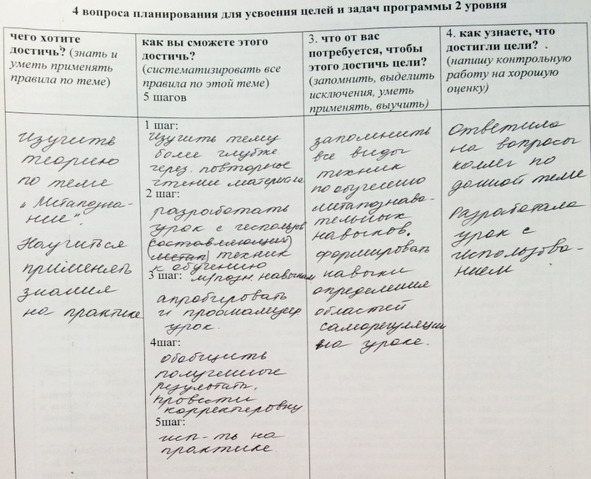 4 вопроса планирования для усвоения целей и задач программы 2 уровня
чего хотите
достичь? (знать и
уметь применять
правила по теме)
как вы сможете этого
достичь?
(систематизировать все
правила по этой теме)
5 шагов
3. что от вас
потребуется, чтобы
этого достичь цели?
(запомнить, выделить
исключения, уметь
применять, выучить)
4. как узнаете, что
достигли цели? .
(напишу контрольную
работу на хорошую
оценку)
Изучить
теорию
по теме
„Метапозна-
ние".
Научится
применять
знания
на практике
1 шаг:
Изучить тему
более глубже
через повторные
чтении материала
2 шаг:
разработать
урок с использов
составляющий
техник
к обучению
3 шаг: м/позн. навыкам
апробировать
и проанализир
урок.
4шаг:
обобщить
полученные
результаты.
провести
корректировку
5шаг:
исп-ть на
практике
запомнить
все виды
техник
по обучению
метапознава-
тельных
навыков.
формировать
навыки
определения
областей
саморегуляции
на уроке.
Ответила
на вопросы
коллег по
данной теме
Разработала
урок с
использова-
нием